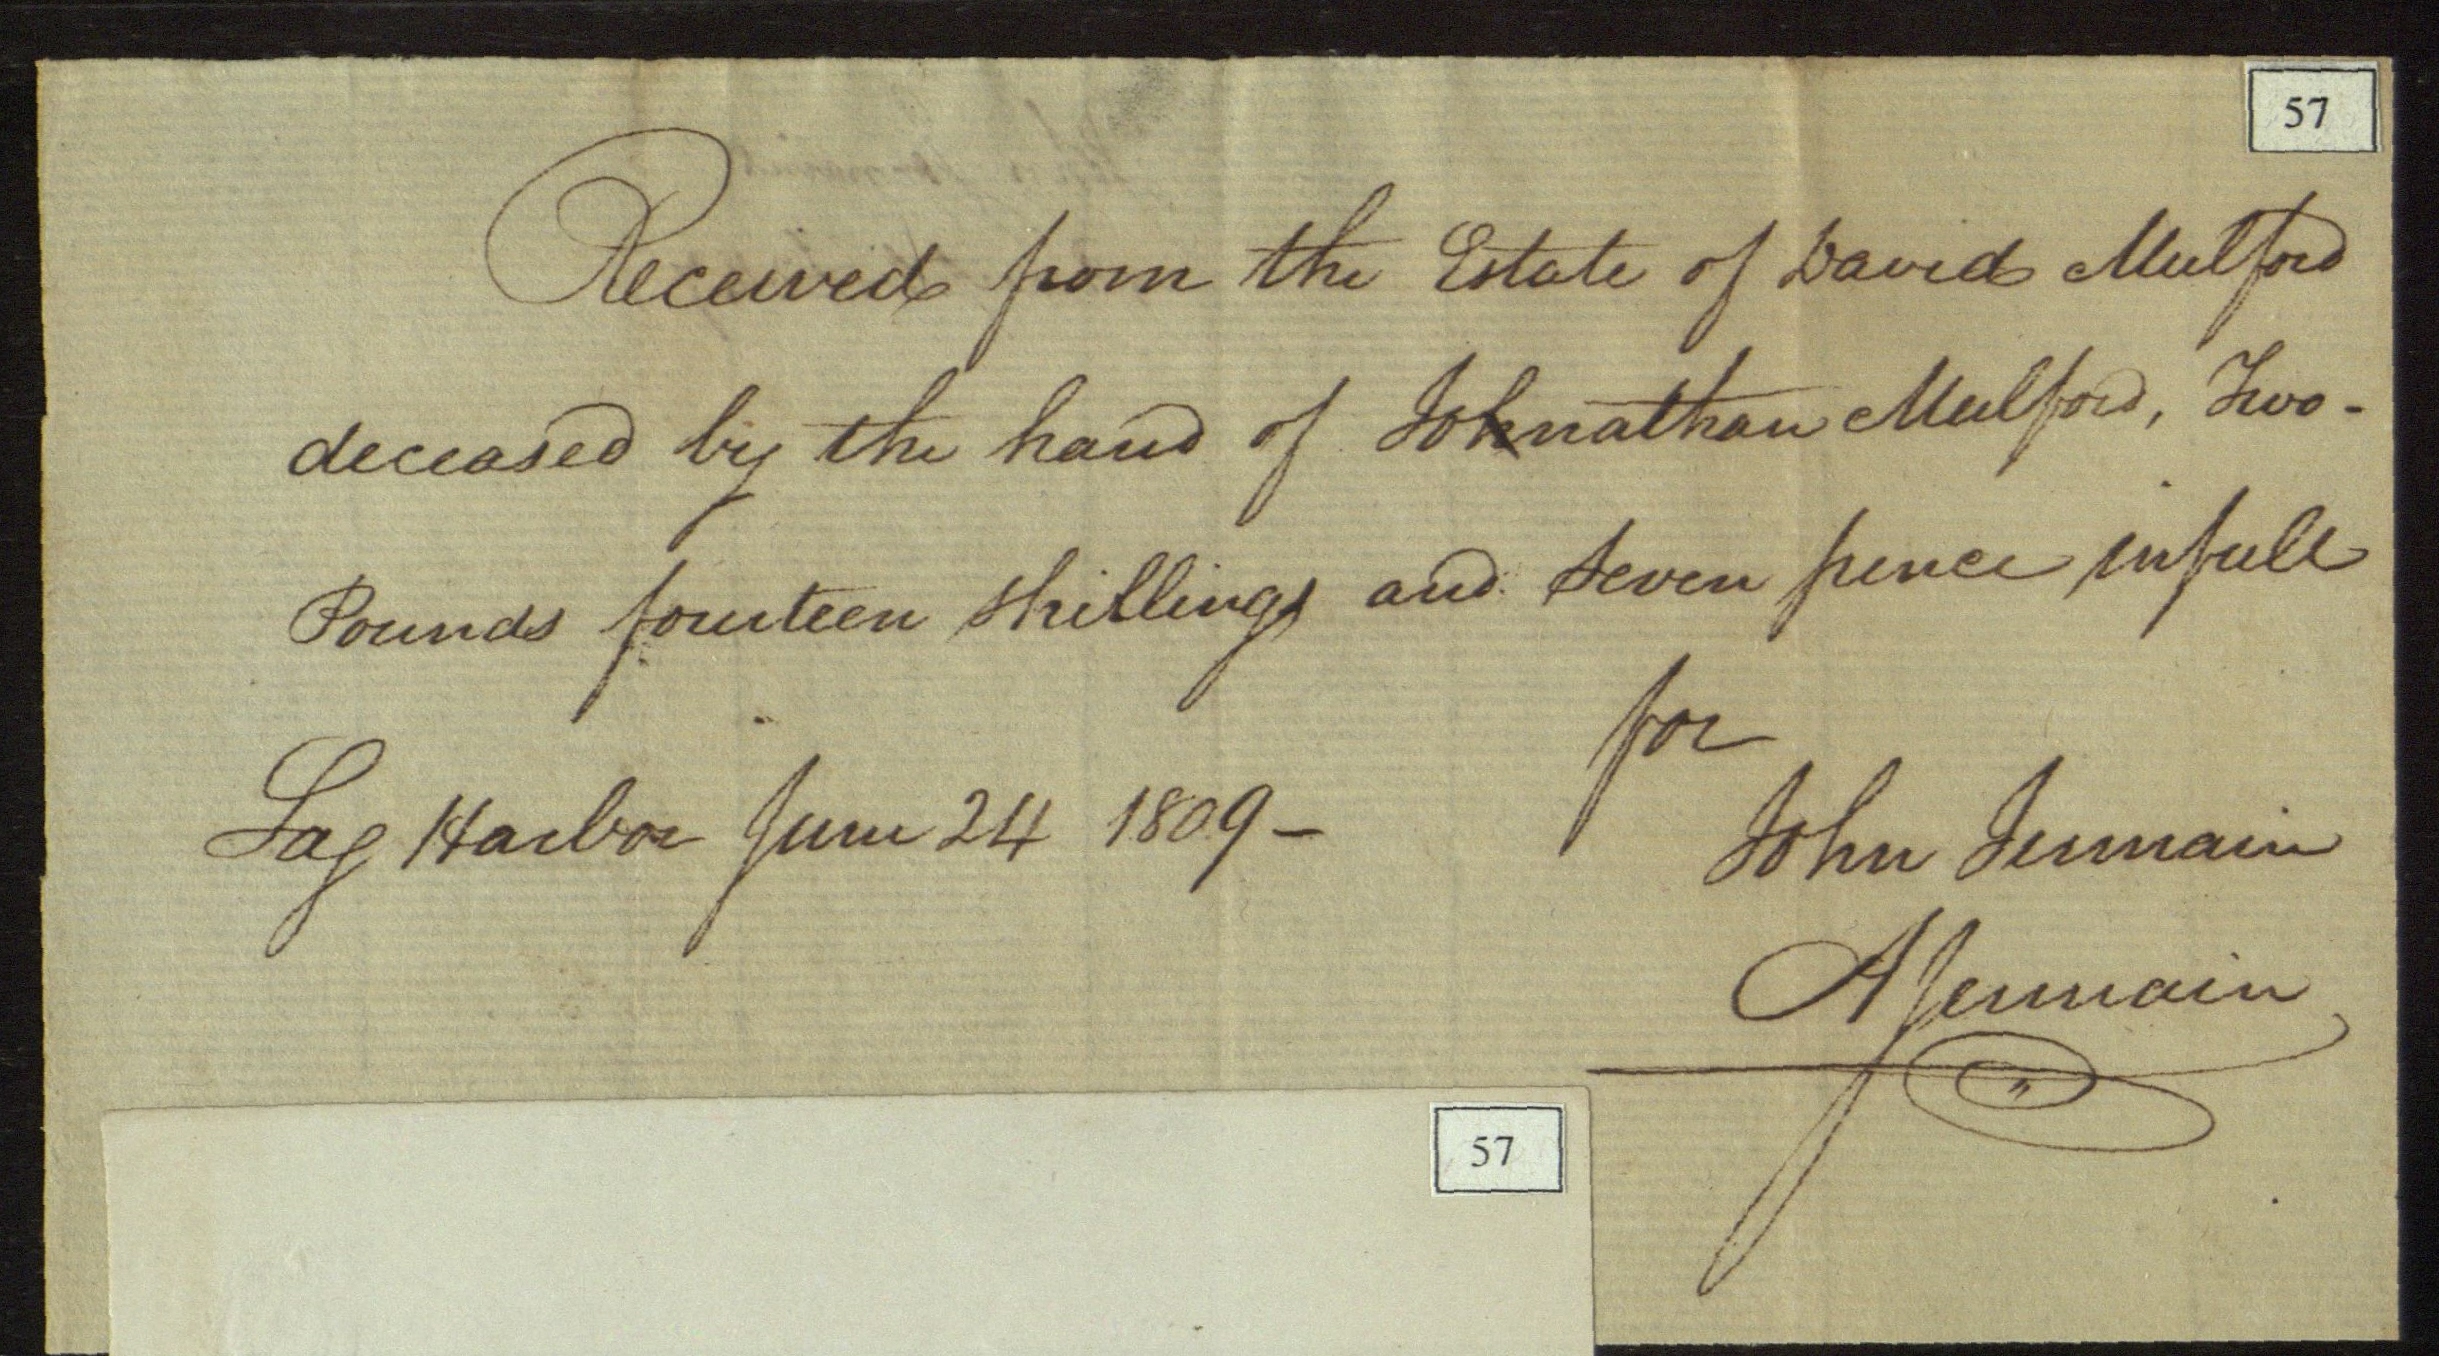 57
Received from the Estate of David Mulford
deceased by the hand of Johnathan Mulford, Two-
Pounds fourteen shillings and seven pence in full
for
Sag Harbor June 24 1809-
John Jermain
A Jermain
57